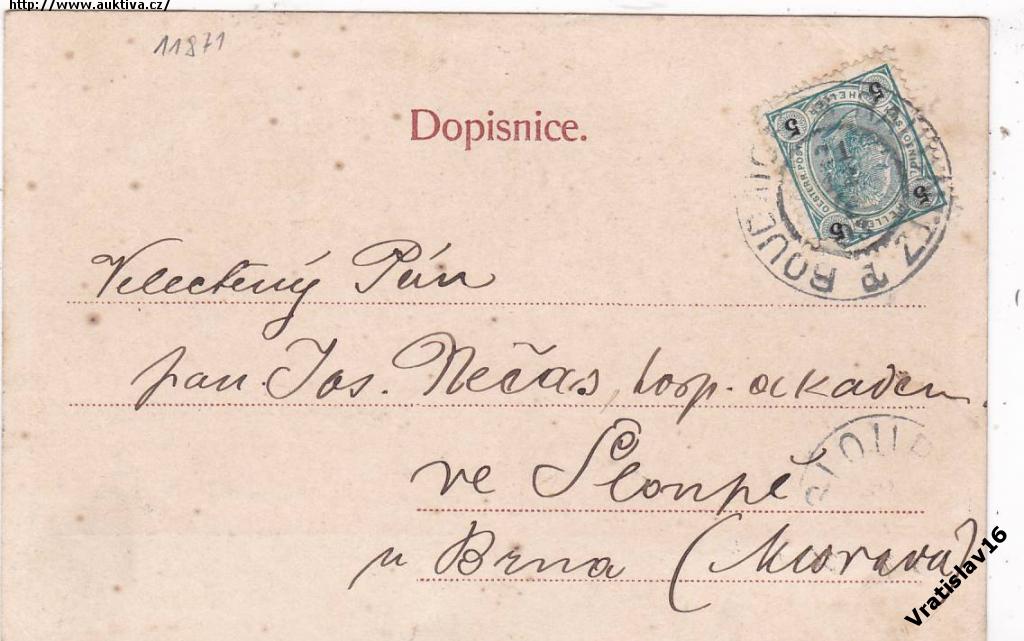 http://www.auktiva.cz/
11871
Dopisnice.
5 HELLER 5
OESTERR. POST
5 HELLER 5
ROUD
Velectěný Pán
pan. Jos. Nečas, hosp. akadem.
ve Sloupě
SLOUP
u Brna (Morava)
Vratislav16